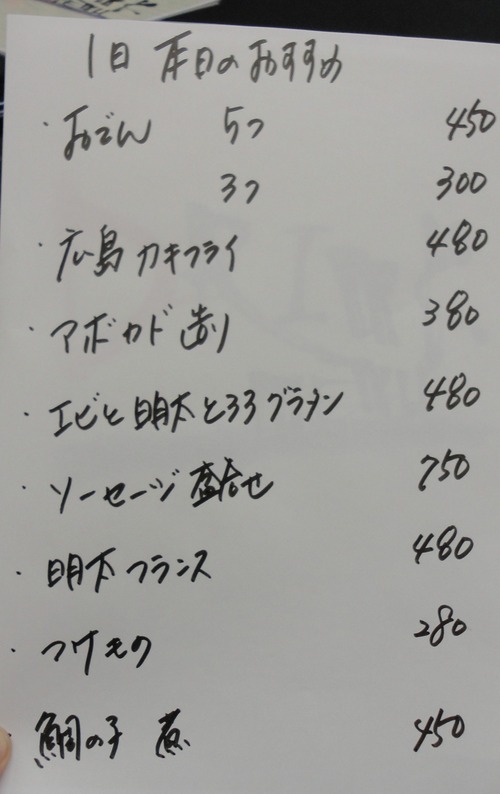 1日 本日のおすすめ
・おでん 5つ 450
3つ 300
・広島カキフライ 480
・アボカド造り 380
・エビと明太とろろグラタン 480
・ソーセージ盛合せ 750
・明太フランス 480
・つけもの 280
・鯛の子 煮 450